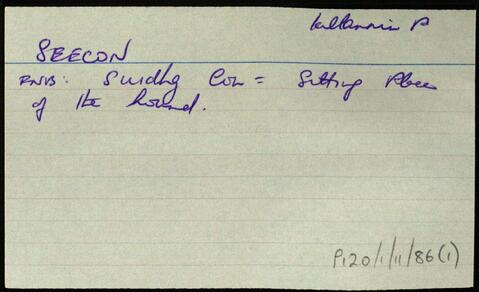 Killannin P
SEECON
RNB: Suidhg Con = Sitting Place
of the hound.
P120/1/11/86(1)